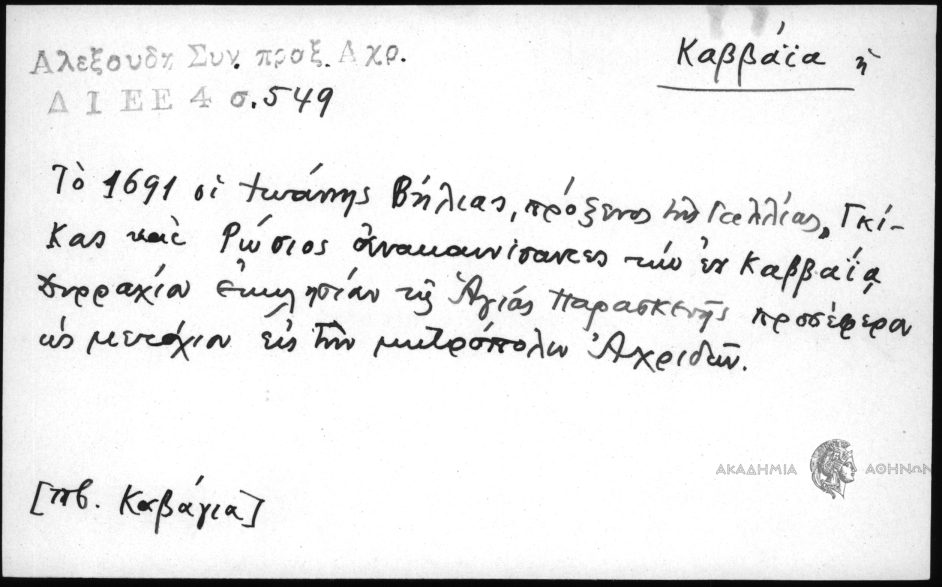 Αλεξουδη Συν. προξ. Αχρ.
Καββάϊα ἡ
ΔΙΕΕ 4 σ. 549
Τὸ 1691 οἱ Ἰωάννης Βήλιας, πρόξενος τῆς Γαλλίας, Γκί-
κας καὶ Ρώσιος ἀνακαινίσαντες τὴν ἐν Καββαΐᾳ
Δυρραχίου ἐκκλησίαν τῆς Ἁγίας Παρασκευῆς προσέφερον
ὡς μετόχιον εἰς τὴν μητρόπολιν Ἀχριδῶν.
[πβ. Καβάγια]
ΑΚΑΔΗΜΙΑ ΑΘΗΝΩΝ